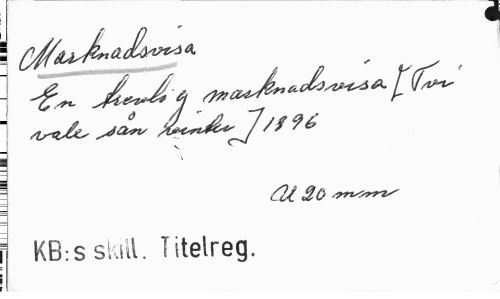 Marknadsvisa
En trevlig marknadsvisa [Tvi
vale sån vinter] 1896
U 20 mm
KB:s skill. Titelreg.